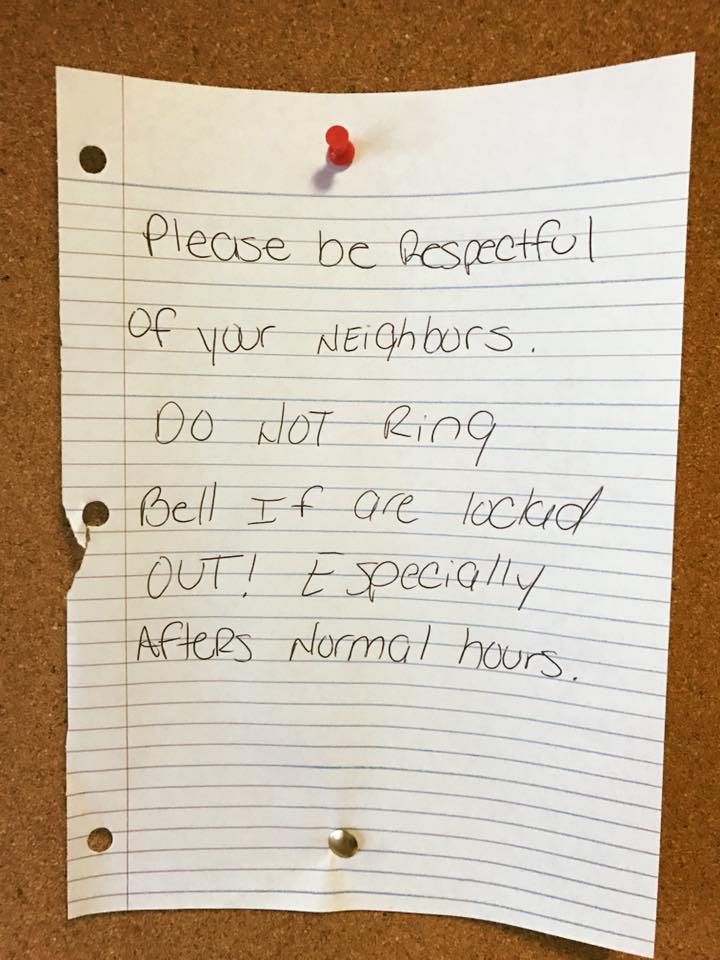 Please be Respectful
of your NEighbors.
DO NOT Ring
Bell If are locked
OUT! Especially
AfteRs Normal hours.